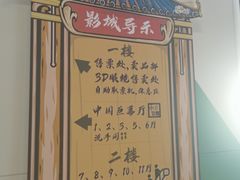 影城导示
一楼
售票处、卖品部
3D眼镜售卖处
自助取票机、休息区
中国巨幕厅
1、2、3、5、6厅
洗手间
二楼
7、8、9、10、11厅